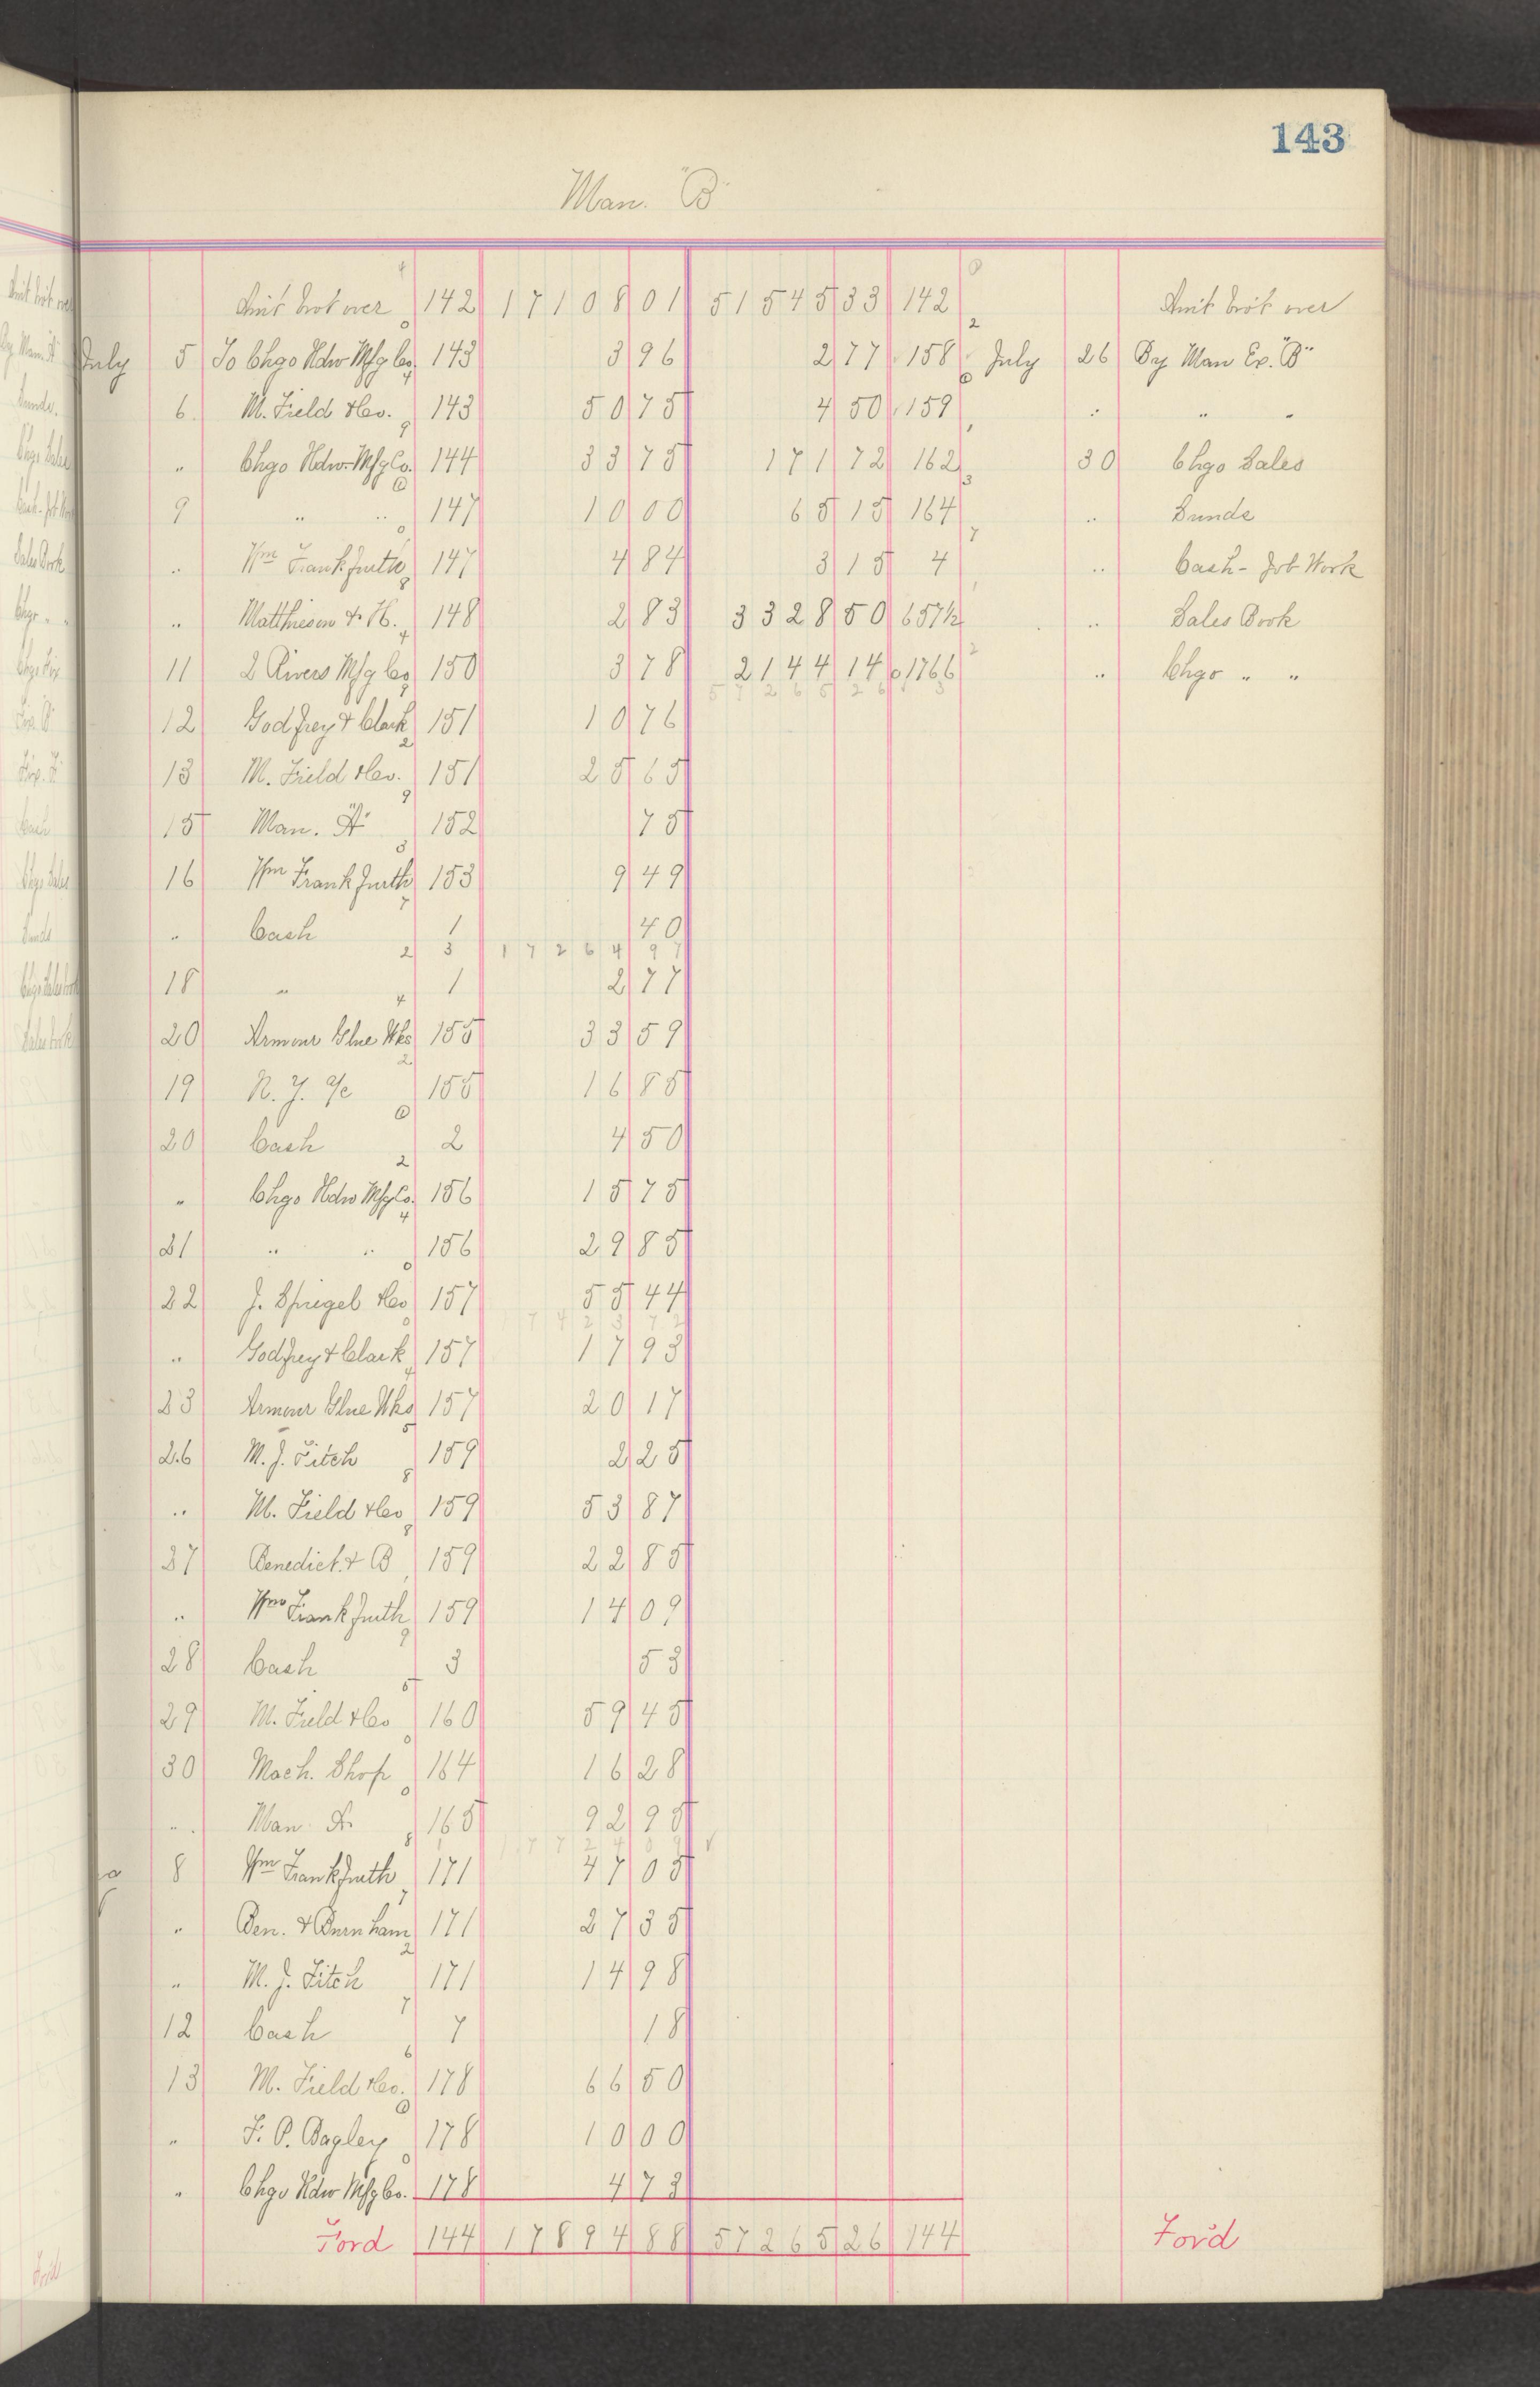 143
Man. "B"
Amt brot over 142 17108 01 51545 33 142 Amt brot over
July 5 To Chgo Hdw Mfg Co. 143 3 96 2 77 158 July 26 By Man Ex. "B"
6 M. Field & Co. 143 50 75 4 50 159 " " "
" Chgo Hdw. Mfg Co. 144 33 75 171 72 162 30 Chgo Sales
9 " " 147 10 00 65 15 164 " Sunds
" Wm Frankfurth 147 4 84 3 15 4 " Cash - Job Work
" Matthiesen & H. 148 2 83 3328 50 657½ " Sales Book
11 2 Rivers Mfg Co 150 3 78 2144 14 1766 " Chgo " "
57265 26
12 Godfrey & Clark 151 10 76
13 M. Field & Co. 151 25 65
15 Man. "A" 152 75
16 Wm Frankfurth 153 9 49
" Cash 1 40
17264 97
18 " 1 2 77
20 Armour Glue Wks 155 33 59
19 N. Y. a/c 155 16 85
20 Cash 2 4 50
" Chgo Hdw Mfg Co. 156 15 75
21 " " 156 29 85
22 J. Spiegel & Co 157 55 44
17423 72
" Godfrey & Clark 157 17 93
23 Armour Glue Wks 157 20 17
26 M. J. Fitch 159 2 25
" M. Field & Co 159 53 87
27 Benedict & B 159 22 85
" Wm Frankfurth 159 14 09
28 Cash 3 53
29 M. Field & Co 160 59 45
30 Mach. Shop 164 16 28
" Man A 165 92 95
17724 09
8 Wm Frankfurth 171 47 05
" Ben. & Burnham 171 27 35
" M. J. Fitch 171 14 98
12 Cash 7 18
13 M. Field & Co. 178 66 50
" F. P. Bagley 178 10 00
" Chgo Hdw Mfg Co. 178 4 73
Ford 144 17894 88 57265 26 144 For'd